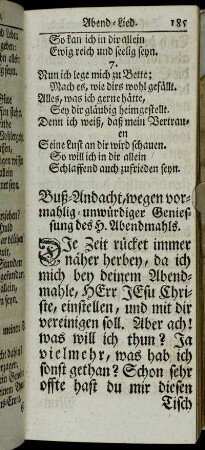 Abend-Lied. 185
So kan ich in dir allein
Ewig reich und seelig seyn.
7.
Nun ich lege mich zu Bette;
Mach es, wie dirs wohl gefällt.
Alles, was ich gerne hätte,
Sey dir gläubig heimgestellt.
Denn ich weiß, daß mein Vertrau-
en
Seine Lust an dir wird schauen.
So will ich in dir allein
Schlaffend auch zufrieden seyn.
Buß-Andacht, wegen vor-
mahlig-unwürdiger Genies-
sung des H. Abendmahls.
DIe Zeit rücket immer
näher herbey, da ich
mich bey deinem Abend-
mahle, HErr JEsu Chri-
ste, einstellen, und mit dir
vereinigen soll. Aber ach!
was will ich thun? Ja
vielmehr, was hab ich
sonst gethan? Schon sehr
offte hast du mir diesen
Tisch